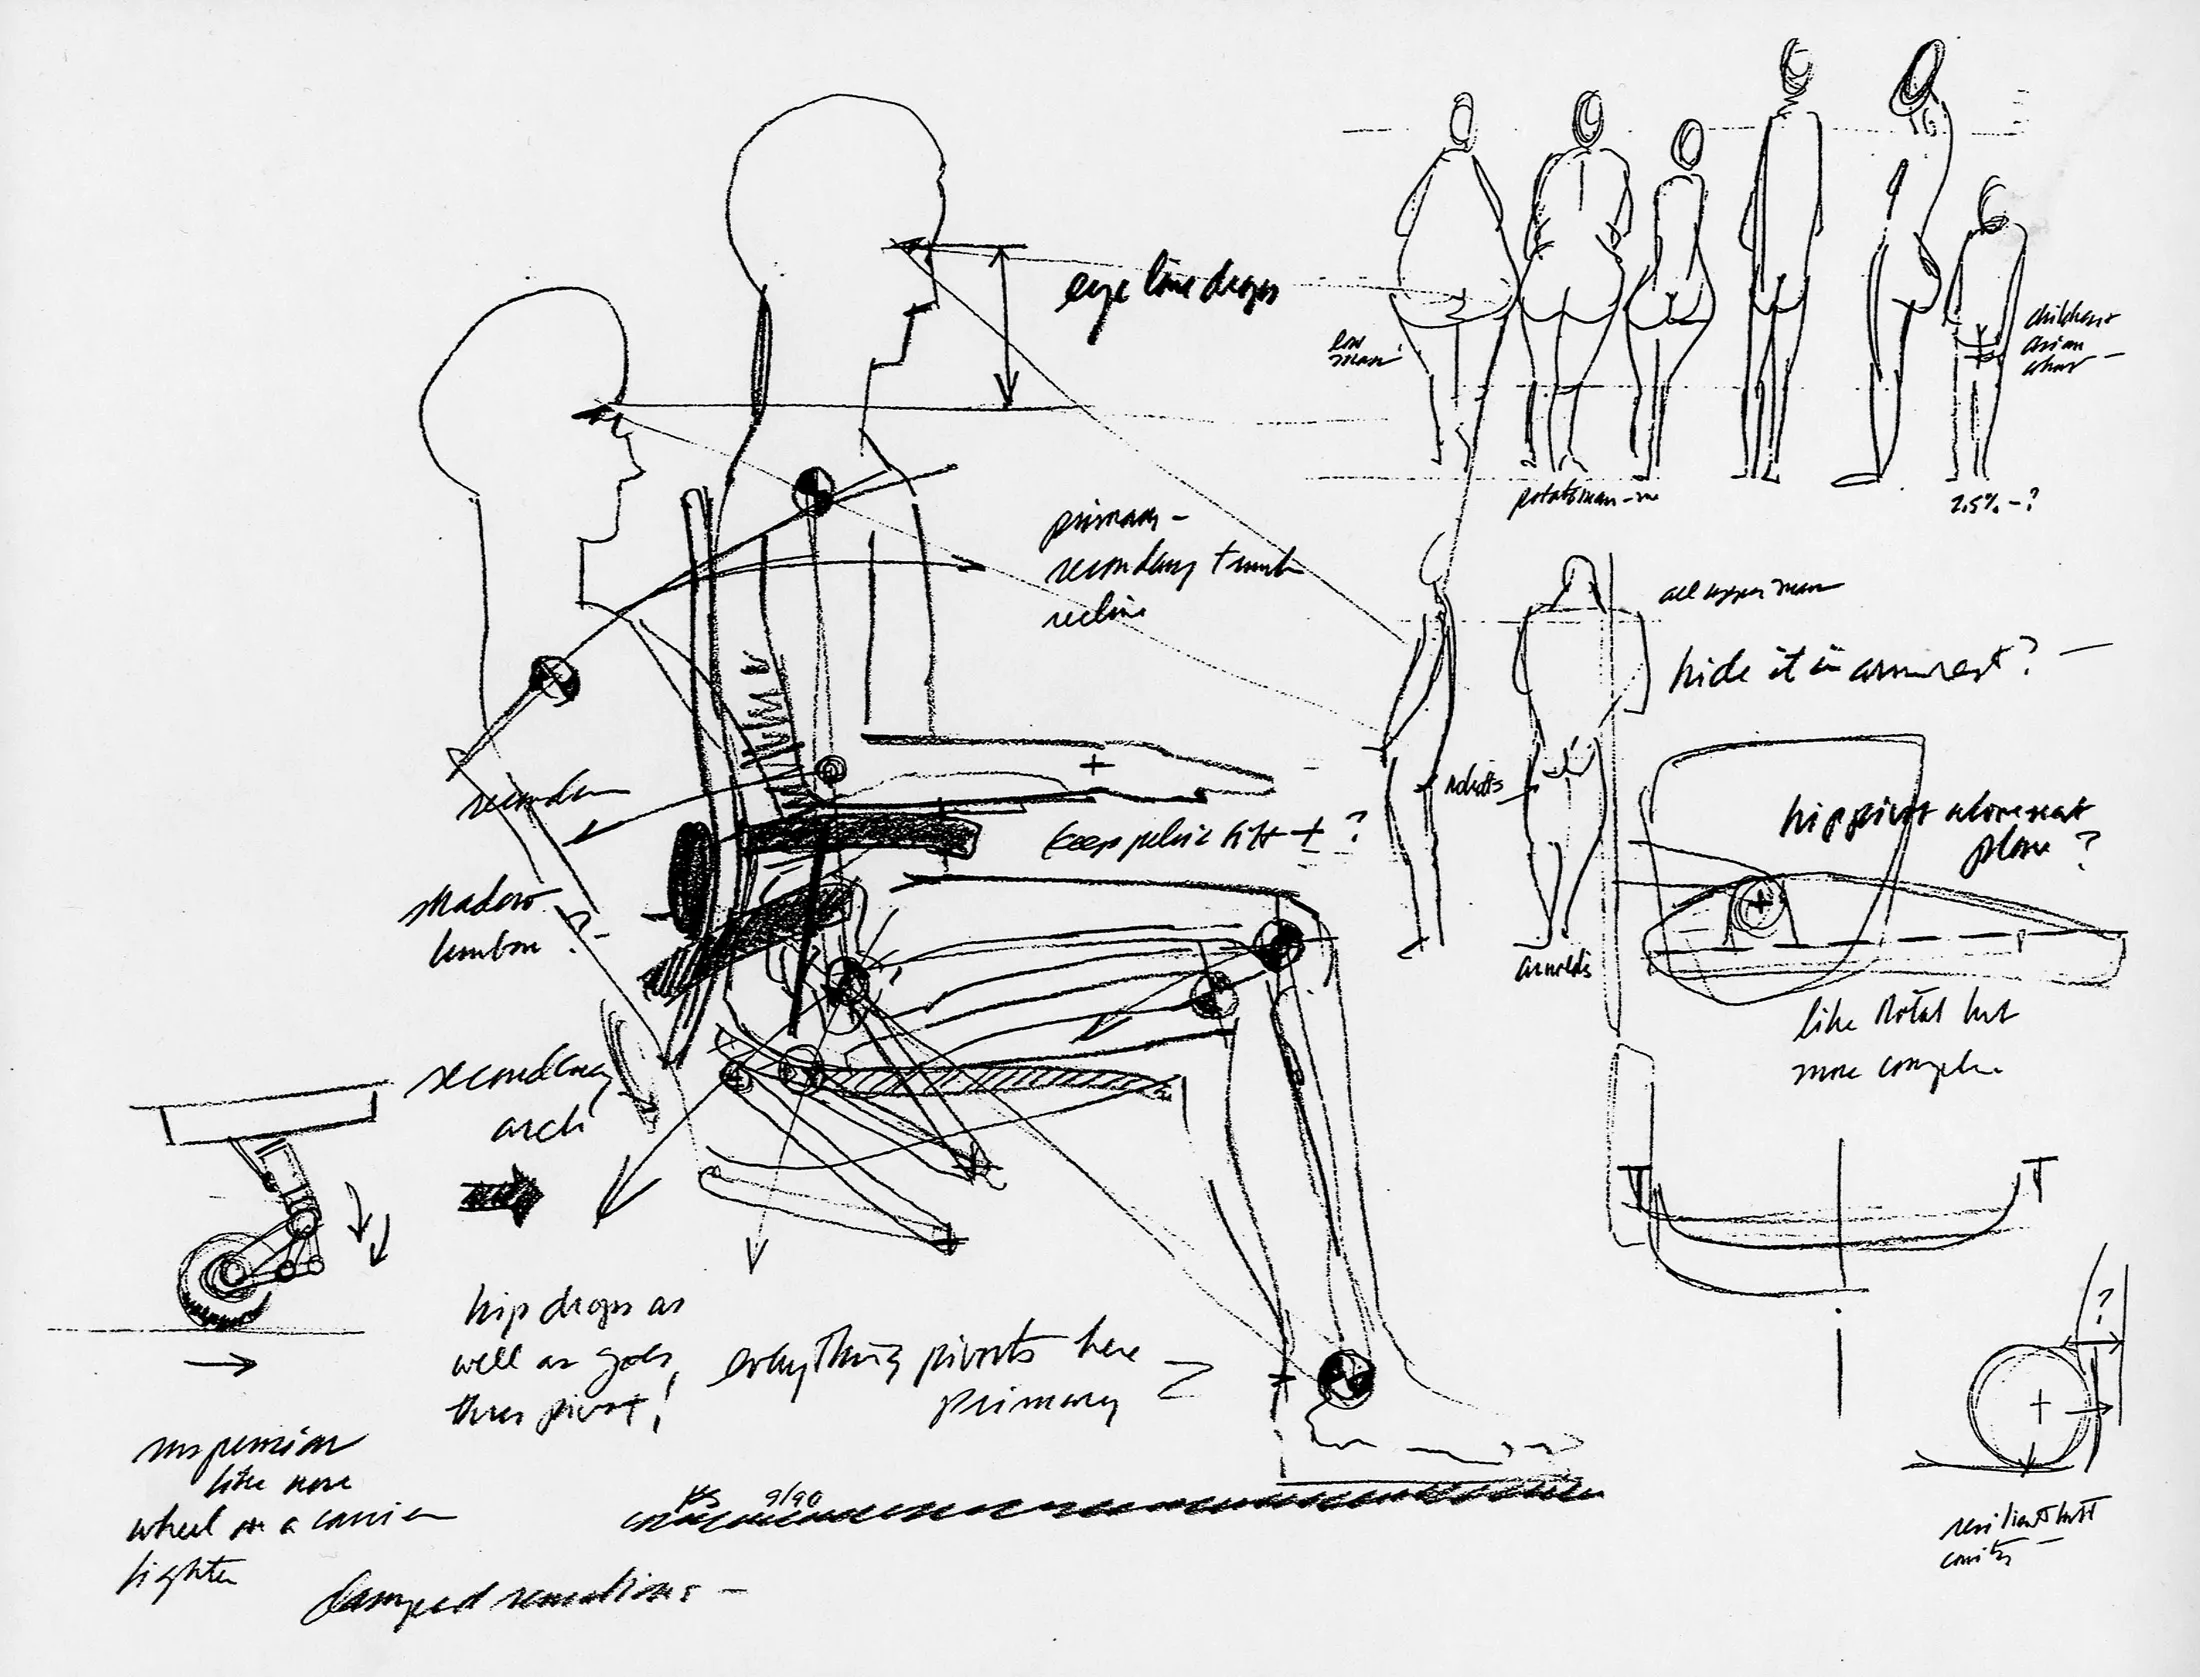 eye line drops
low
man
children +
asian
potato man - me
2.5% - ?
primary -
secondary trunk
recline
all upper man
hide it in armrest? -
robots
secondary
keep pelvic tilt + ?
hip pivot above seat
plane?
shadow
lumbar ?
arnolds
like Total but
more complex
secondary
arch
hip drops as
well as goes
thru pivot!
everything pivots here
primary
?
suspension
like nose
wheel on a carrier
fighter
9/90
damped
resilient butt
cavity -